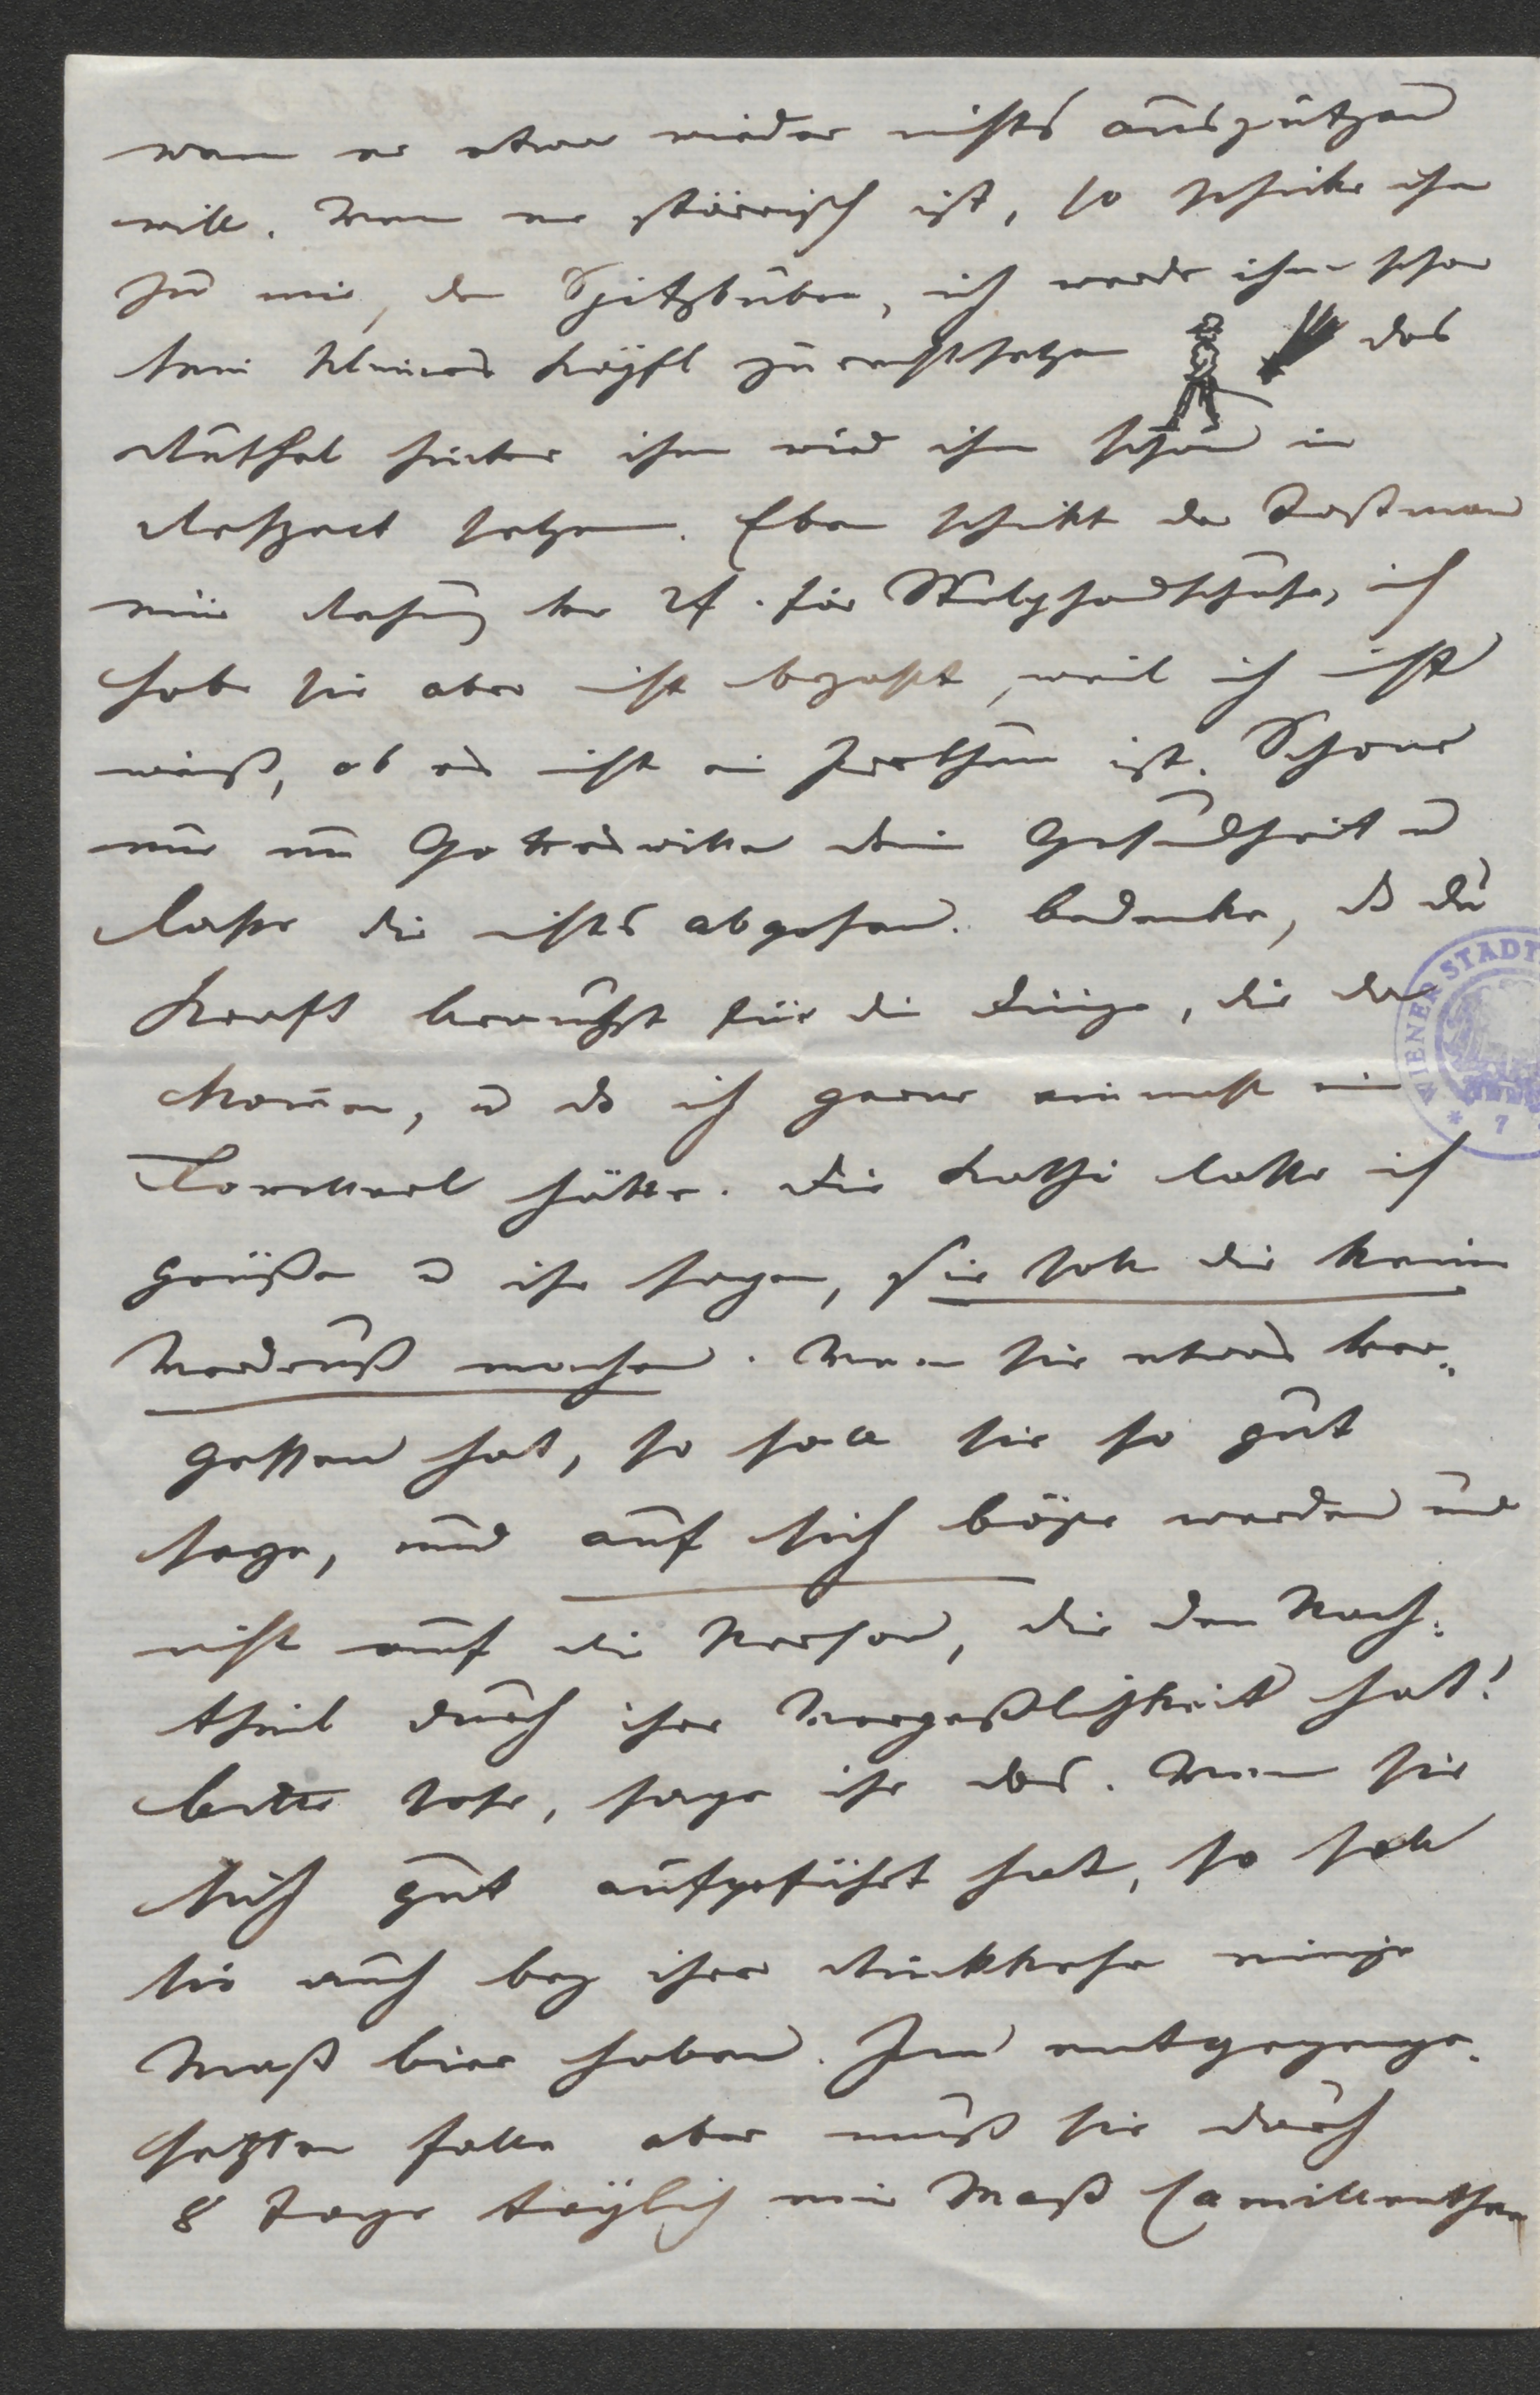 wenn er etwa wieder nichts auszuputzen
will. Wenn er störrisch ist, so schicke ihn
zu mir, den Spitzbuben, ich werde ihm schon
sein kleines Köpfl zurechtsetzen das
Ruthel hinter ihm wird ihn schon in
Respect setzen. Eben schikt der
mir Rechnung 2 f. für handschuhe, ich
habe sie aber nicht bezahlt, weil ich nicht
weiß, ob es nicht ein Irrthum ist. Schone
nur um Gotteswillen dein Gesundheit u
lasse dir nichts abgehen. bedenke, dß du
Kraft brauchst für die Dinge, die da
kommen, u dß ich gerne einmahl ein
hätte. Die Kathi lasse ich
grüßen u ihr sagen, sie soll dir keinen
Verdruß machen. Wenn sie etwas ver-
gessen hat, so soll sie so gut
sagn, und auf sich böse werden und
nicht auf die Person, die den Nach-
theil durch ihre Vergeßlichkeit hat!
bitte sehr, sage ihr das. Wenn sie
sich gut aufgeführt hat, so soll
sie auch bey ihrer Rückkehr einige
Maß bier haben. Im entgegenge-
setzten Falle aber muß sie durch
8 Tage täglich eine Maß Camillenthee
WIENER STADT
* 7